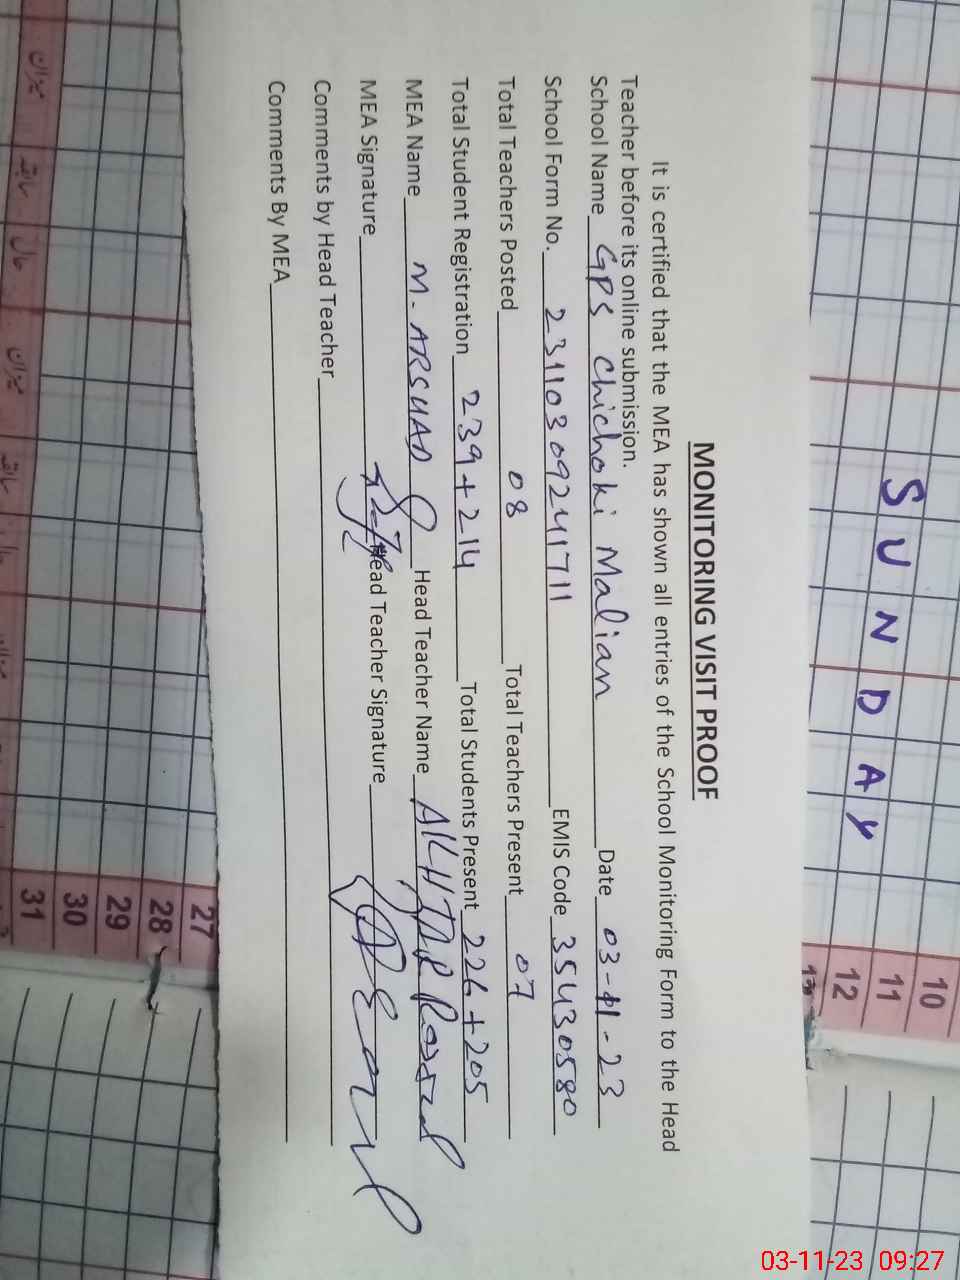 SUNDAY
10
11
12
13
MONITORING VISIT PROOF
It is certified that the MEA has shown all entries of the School Monitoring Form to the Head
Teacher before its online submission.
School Name GPS Chichoki Malian Date 03-11-23
School Form No. 23110309241711 EMIS Code 35430580
Total Teachers Posted 08 Total Teachers Present 07
Total Student Registration 239+214 Total Students Present 226+205
MEA Name M. ARSHAD Head Teacher Name AKHTAR Rasool
MEA Signature Head Teacher Signature
Comments by Head Teacher
Comments By MEA
27
28
29
30
31
میزان
سابقہ
حال
میزان
سابقہ
03-11-23 09:27